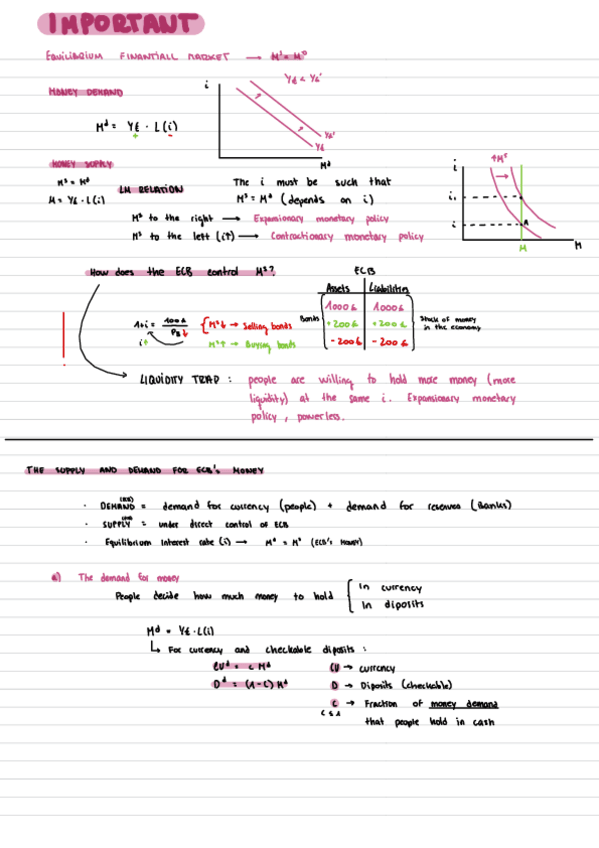 IMPORTANT
EQUILIBRIUM FINANTIALL MARKET → Mˢ = Mᴰ
MONEY DEMAND
i
Y€ < Y€'
Mᵈ = Y€ · L(i)
+ -
Y€'
Y€
Mᵈ
MONEY SUPPLY
Mˢ = Mᵈ
M = Y€ · L(i)
LM RELATION
The i must be such that
Mˢ = Mᵈ (depends on i)
Mˢ to the right → Expansionary monetary policy
Mˢ to the left (i↑) → Contractionary monetary policy
i
↑Mˢ
i₁
i
A
M
M
How does the ECB control Mˢ?
ECB
Assets Liabilities
Bonds
1000€ 1000€
+200€ +200€
-200€ -200€
Stock of money
in the economy
1+i = 100€ / PB↓
i↑
Mˢ↓ → Selling bonds
Mˢ↑ → Buying bonds
LIQUIDITY TRAP : people are willing to hold more money (more
liquidity) at the same i. Expansionary monetary
policy, powerless.
THE SUPPLY AND DEMAND FOR ECB's MONEY
· DEMAND = demand for currency (people) + demand for reserves (Banks)
· SUPPLY = under direct control of ECB
· Equilibrium interest rate (i) → Mᵈ = Mˢ (ECB's MONEY)
a) The demand for money
People decide how much money to hold
In currency
In diposits
Mᵈ = Y€ · L(i)
↳ For currency and checkable diposits :
CUᵈ = c Mᵈ
Dᵈ = (1-c) Mᵈ
CU → currency
D → Diposits (checkable)
C → Fraction of money demand
that people hold in cash